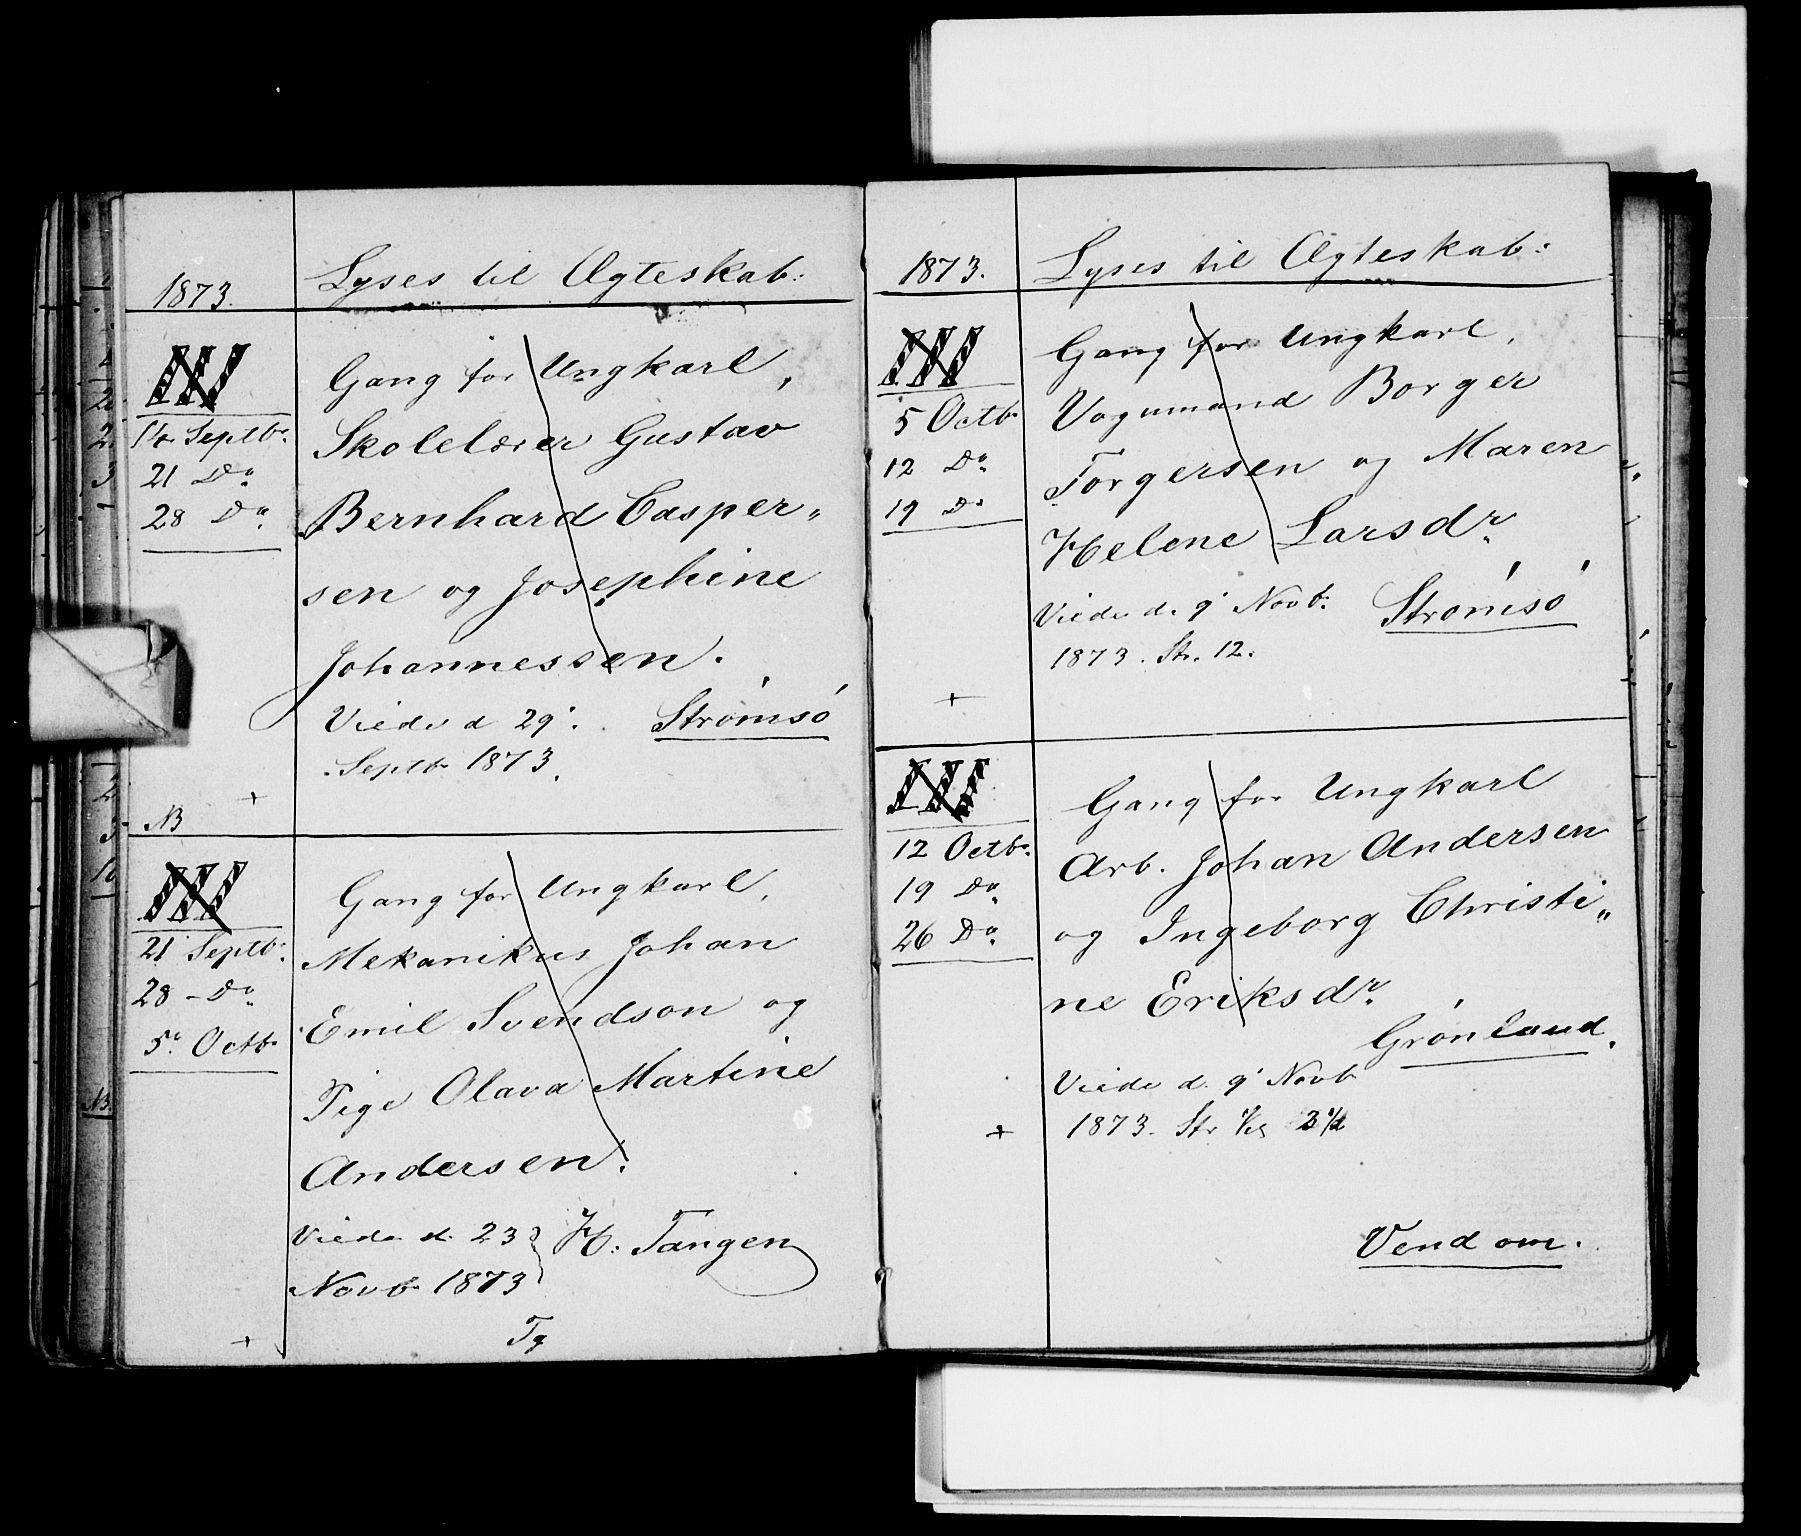 1873.
Lyses til Ægteskab:
III
14 Septbr.
21 Do
28 Do
Gang for Ungkarl,
Skolelærer Gustav
Bernhard Casper„
sen og Josephine
Johannessen.
Viede d 29'.
Septbr 1873.
Strømsö
+
NB
III
21 Septbr.
28 – Do
5' Octbr
Gang for Ungkarl,
Mekanikus Johan
Emil Svendson og
Pige Olava Martine
Andersen.
Viede d. 23
Novb. 1873
H: Tangen
Tg
+
1873.
Lyses til Ægteskab:
III
5 Octbr
12 Do
19 Do
Gang for Ungkarl,
Vognmand Borger
Torgersen og Maren
Helene Larsdr.
Viede d. 9' Novb.
1873. Str. 12.
Strømsö
+
III
12 Octbr.
19 Do
26 Do
Gang for Ungkarl
Arb. Johan Andersen
og Ingeborg Christi„
ne Eriksdr.
Grönland.
Viede d. 9' Novb
1873. Str
+
Vend om.